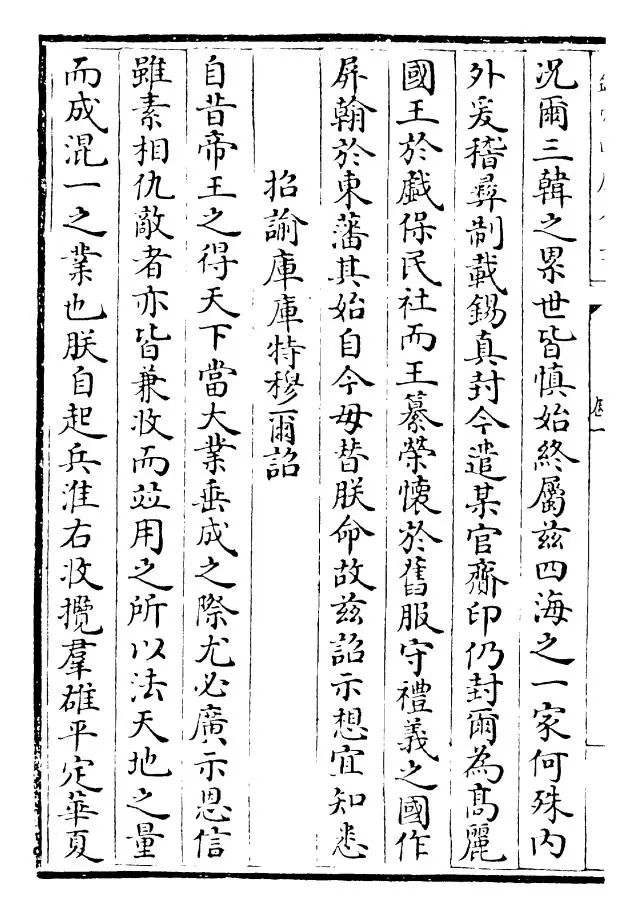 况爾三韓之界世皆慎始終屬兹四海之一家何殊内
外爰稽彞制載錫真封今遣某官齎印仍封爾為髙麗
國王於戲保民社而王纂榮懷於舊服守禮義之國作
屏翰於東藩其始自今毋替朕命故兹詔示想宜知悉
招諭庫庫特穆爾詔
自昔帝王之得天下當大業垂成之際尤必廣示恩信
雖素相仇敵者亦皆兼收而竝用之所以法天地之量
而成混一之業也朕自起兵淮右收攬羣雄平定華夏